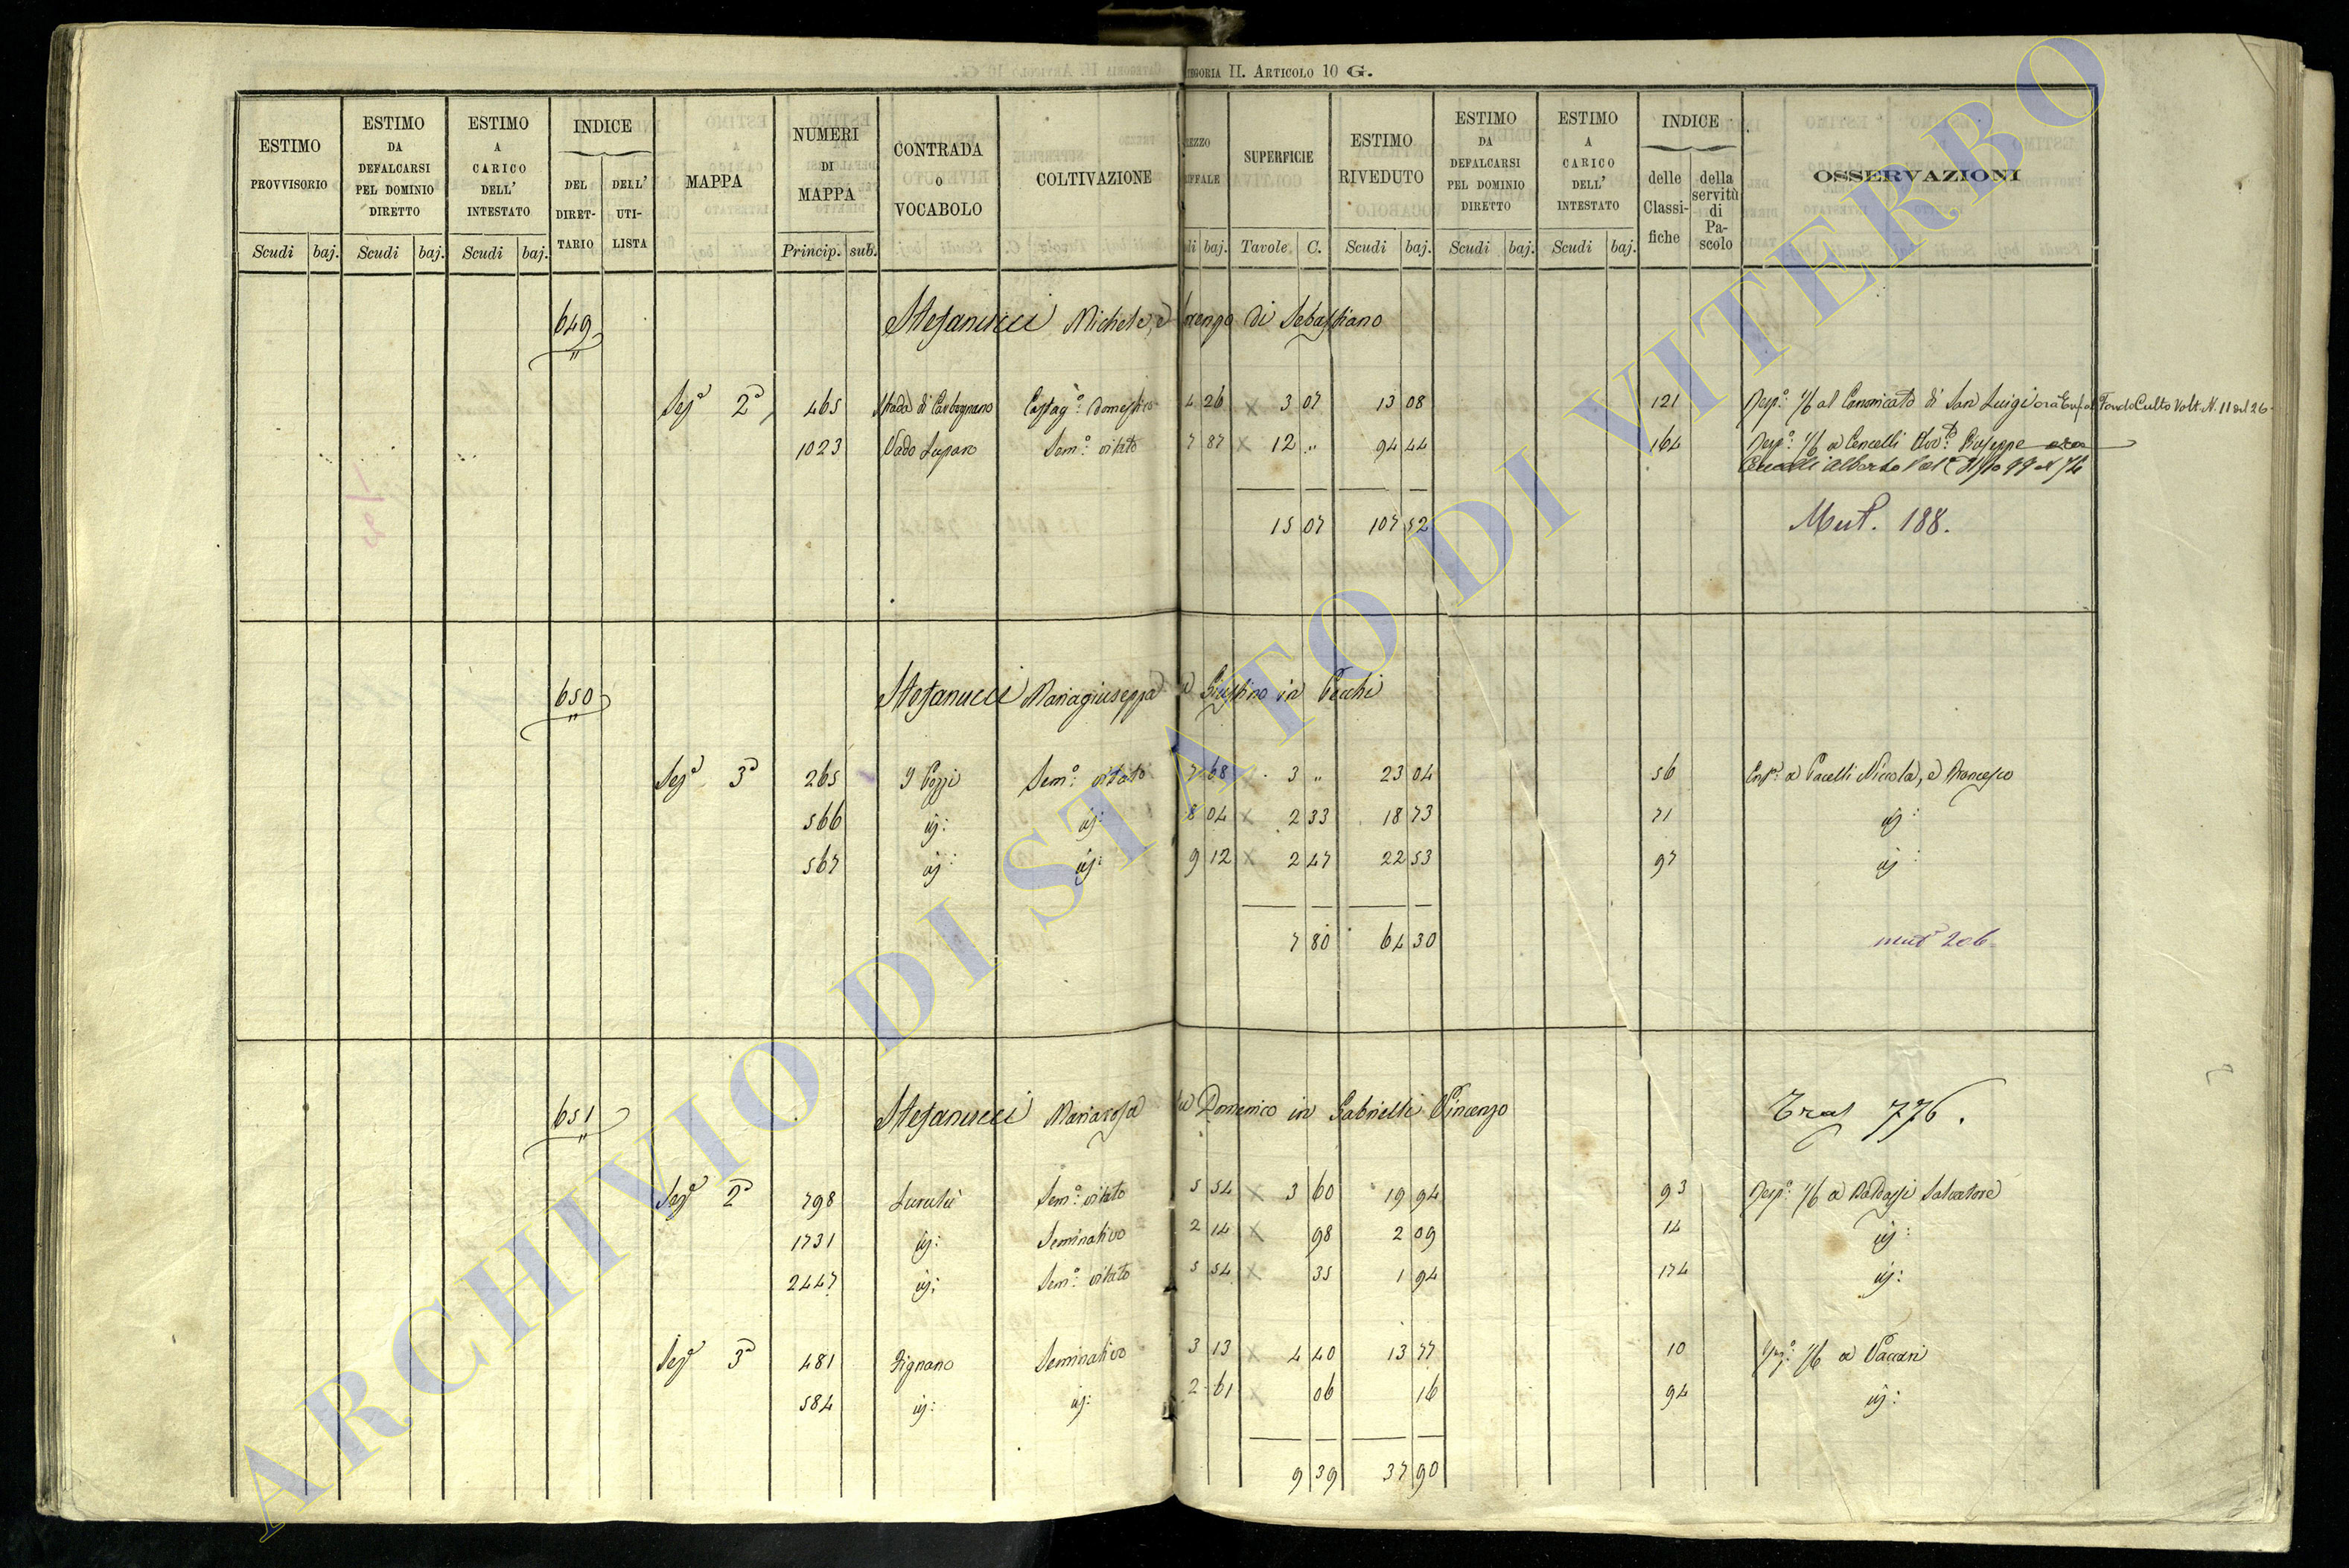 CATEGORIA II. ARTICOLO 10 G.
ESTIMO PROVVISORIO
ESTIMO DA DEFALCARSI PEL DOMINIO DIRETTO
ESTIMO A CARICO DELL' INTESTATO
INDICE
DEL DIRET-TARIO
DELL' UTI-LISTA
MAPPA
NUMERI DI MAPPA
CONTRADA O VOCABOLO
COLTIVAZIONE
REZZO EFFALE
SUPERFICIE
ESTIMO RIVEDUTO
ESTIMO DA DEFALCARSI PEL DOMINIO DIRETTO
ESTIMO A CARICO DELL' INTESTATO
INDICE
delle Classi-fiche
della servitù di Pa-scolo
OSSERVAZIONI
Scudi baj. Scudi baj. Scudi baj. Princip. sub. di baj. Tavole C. Scudi baj. Scudi baj. Scudi baj.
649 Stefanucci Michele, e Lorenzo di Sebastiano
Sezᵉ 2ᵃ 465 Strada di Carbognano Castagº: domestico 4 26 3 07 13 08 121 Respº: 1/6 al Canonicato di San Luigi ora Fondo Culto Volt. N. 11 del 26
1023 Vado Lupano Semº: vitato 7 87 12 " 94 44 164 Respº: 1/6 a Cencelli Giuseppe
Cencelli Alberto
15 07 107 52 Mut. 188.
650 Stefanucci Mariagiuseppa di Giustino in Cecchi
Sezᵉ 3ᵃ 265 I Pozzi Semº: vitato 7 68 3 " 23 04 56 Enfº: a Pacelli Niccola, e Francesco
566 id: id: 8 04 2 33 18 73 71 id:
567 id: id: 9 12 2 47 22 53 97 id:
7 80 64 30 mutª 206
651 Stefanucci Mariarosa di Domenico in Gabrielli Vincenzo Tras 776.
Sezᵉ 2ᵃ 798 Semº: vitato 5 54 3 60 19 94 93 Respº: 1/6 a Baldassi Salvatore
1731 id: Seminativo 2 14 98 2 09 14 id:
2447 id: Semº: vitato 5 54 35 1 94 174 id:
Sezᵉ 3ᵃ 481 Fignano Seminativo 3 13 4 40 13 77 10 1/6 a Vaccari
584 id: id: 2 61 06 16 94 id:
9 39 37 90
ARCHIVIO DI STATO DI VITERBO